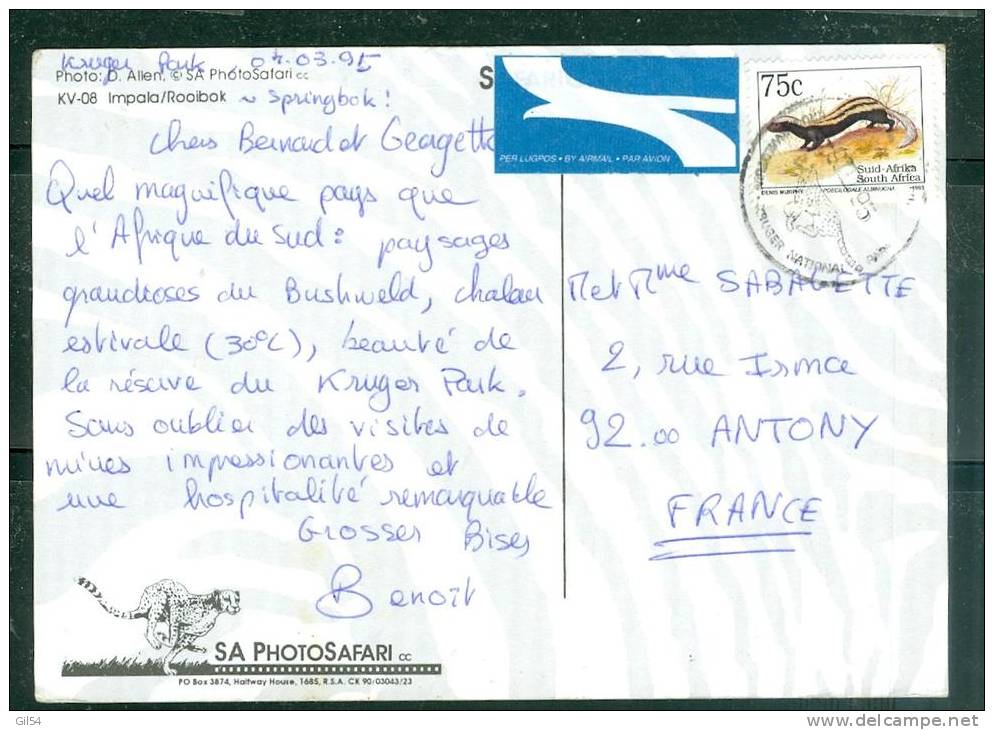 Kruger Park, 04.03.95
Photo: D. Allen, © SA PhotoSafari cc
KV-08 Impala/Rooibok ~ Springbok!
S
PER LUGPOS • BY AIRMAIL • PAR AVION
75c
Suid-Afrika
South Africa
DENIS MURPHY POECILOGALE ALBINUCHA 1993
KRUGER NATIONAL PARK
Chers Bernard et Georgette
Quel magnifique pays que
l'Afrique du Sud : paysages
grandioses du Bushweld, chaleur
estivale (30°C), beauté de
la réserve du Kruger Park.
Sans oublier des visites de
mines impressionantes et
une hospitalité remarquable
Grosses Bises
Benoît
M et Mme SABALETTE
2, rue Irma
92.00 ANTONY
FRANCE
SA PHOTOSAFARI cc
PO Box 3874, Halfway House, 1685, R.S.A. CK 90/03043/23
Gil54
delcampe.net